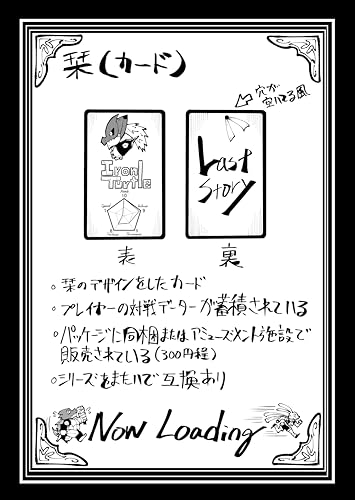 栞(カード)
穴が
空いてる風
Iron
Turtle
Last
Story
表
裏
。栞のデザインをしたカード
。プレイヤーの対戦データーが蓄積されている
。パッケージに同梱またはアミューズメント施設で
販売されている(300円程)
。シリーズをまたいで互換あり
Now Loading